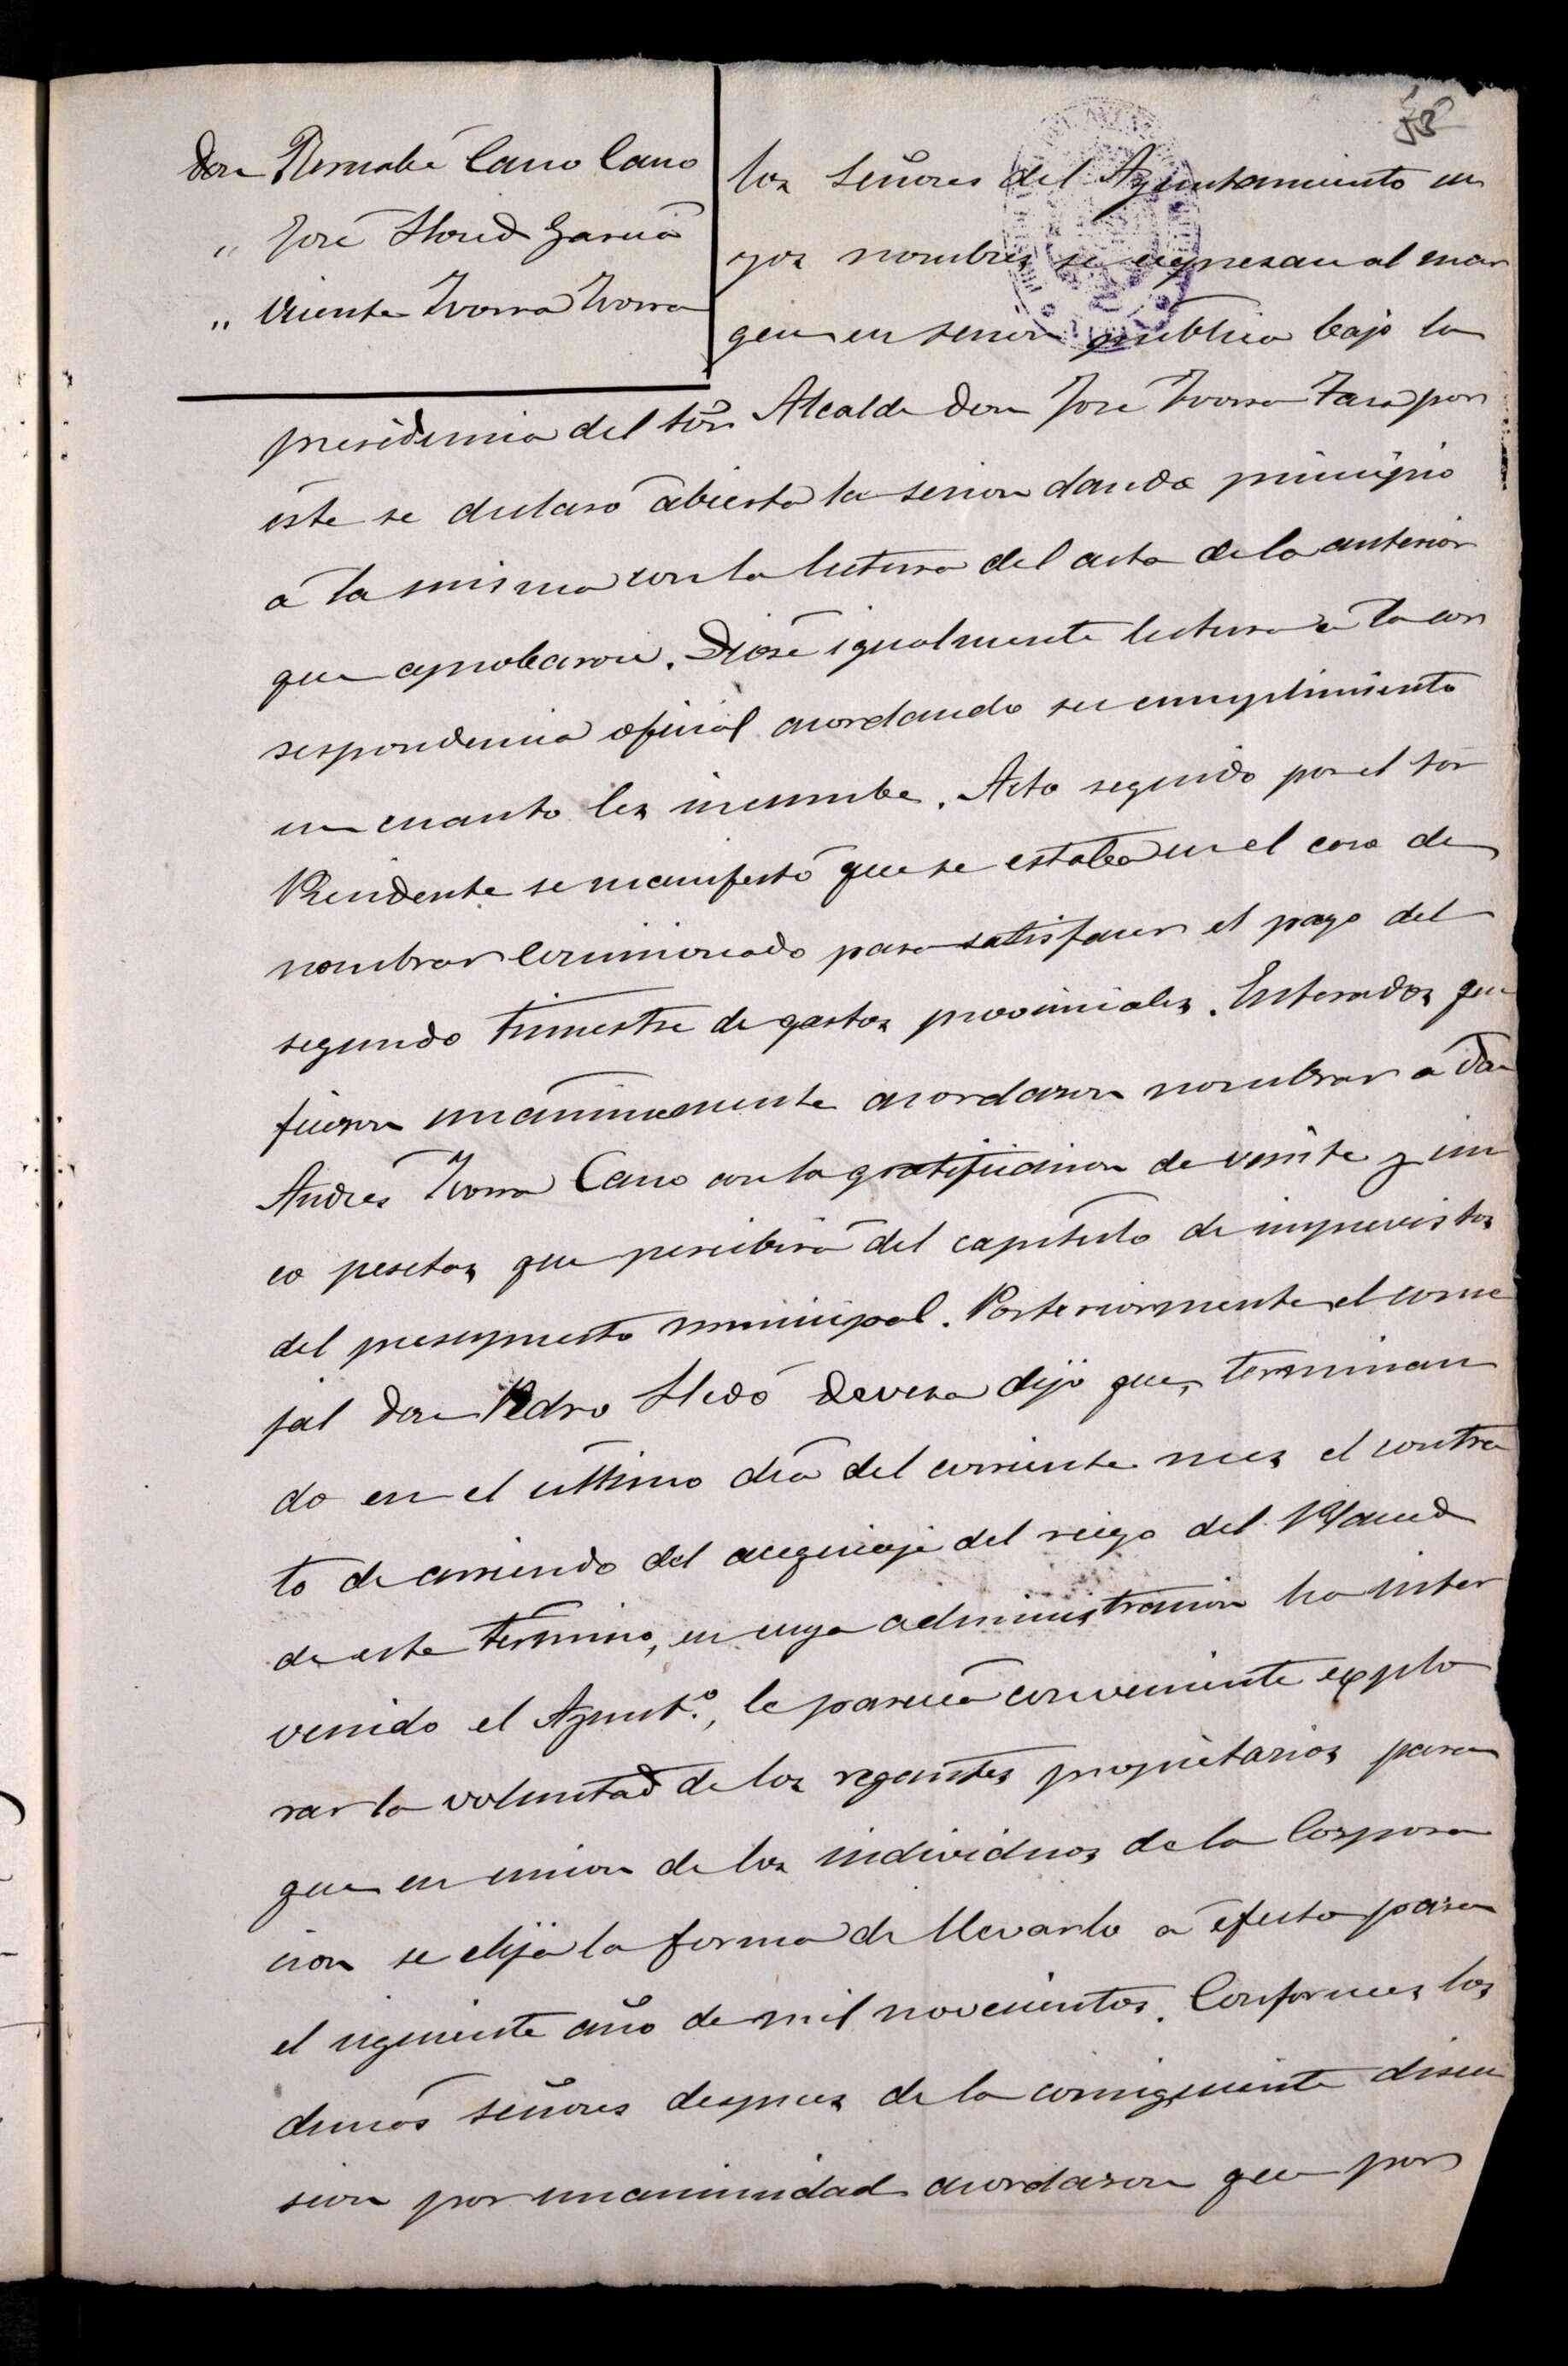 Don Bernabé Cano Cano
" José Lloret Garcia
" Vicente Ivorra Ivorra
los Señores del Ayuntamiento cu
yos nombres se expresan al mar
gen en sesion publica bajo la
presidencia del Sor Alcalde don José Ivorra por
éste se declaró abierta la sesion dando principio
á la misma con la lectura del acta de la anterior
que aprobaron. Diose igualmente lectura á la cor
respondencia oficial acordando su cumplimiento
en cuanto les incumbe. Acto seguido por el Sor
Presidente se manifestó que se estaba en el caso de
nombrar Comisionado para satisfacer el pago del
segundo trimestre de gastos provinciales. Enterados que
fueron unanimemente acordaron nombrar á don
Andres Ivorra Cano con la gratificacion de veinte y cin
co pesetas que percibirá del capitulo de imprevistos
del presupuesto municipal. Posteriormente el conce
jal don Pedro Lledó Devesa dijo que, terminan
do en el ultimo dia del corriente mes el contra
to de arriendo del acequiaje del riego del Planet
de este termino, en cuya administracion ha inter
venido el Ayunt.º, le parecia conveniente explo
rar la voluntad de los regantes propietarios para
que en union de los individuos de la Corpora
cion se elija la forma de llevarlo a efecto para
el siguiente año de mil novecientos. Conformes los
demás señores despues de la consiguiente discu
sion por unanimidad acordaron que por